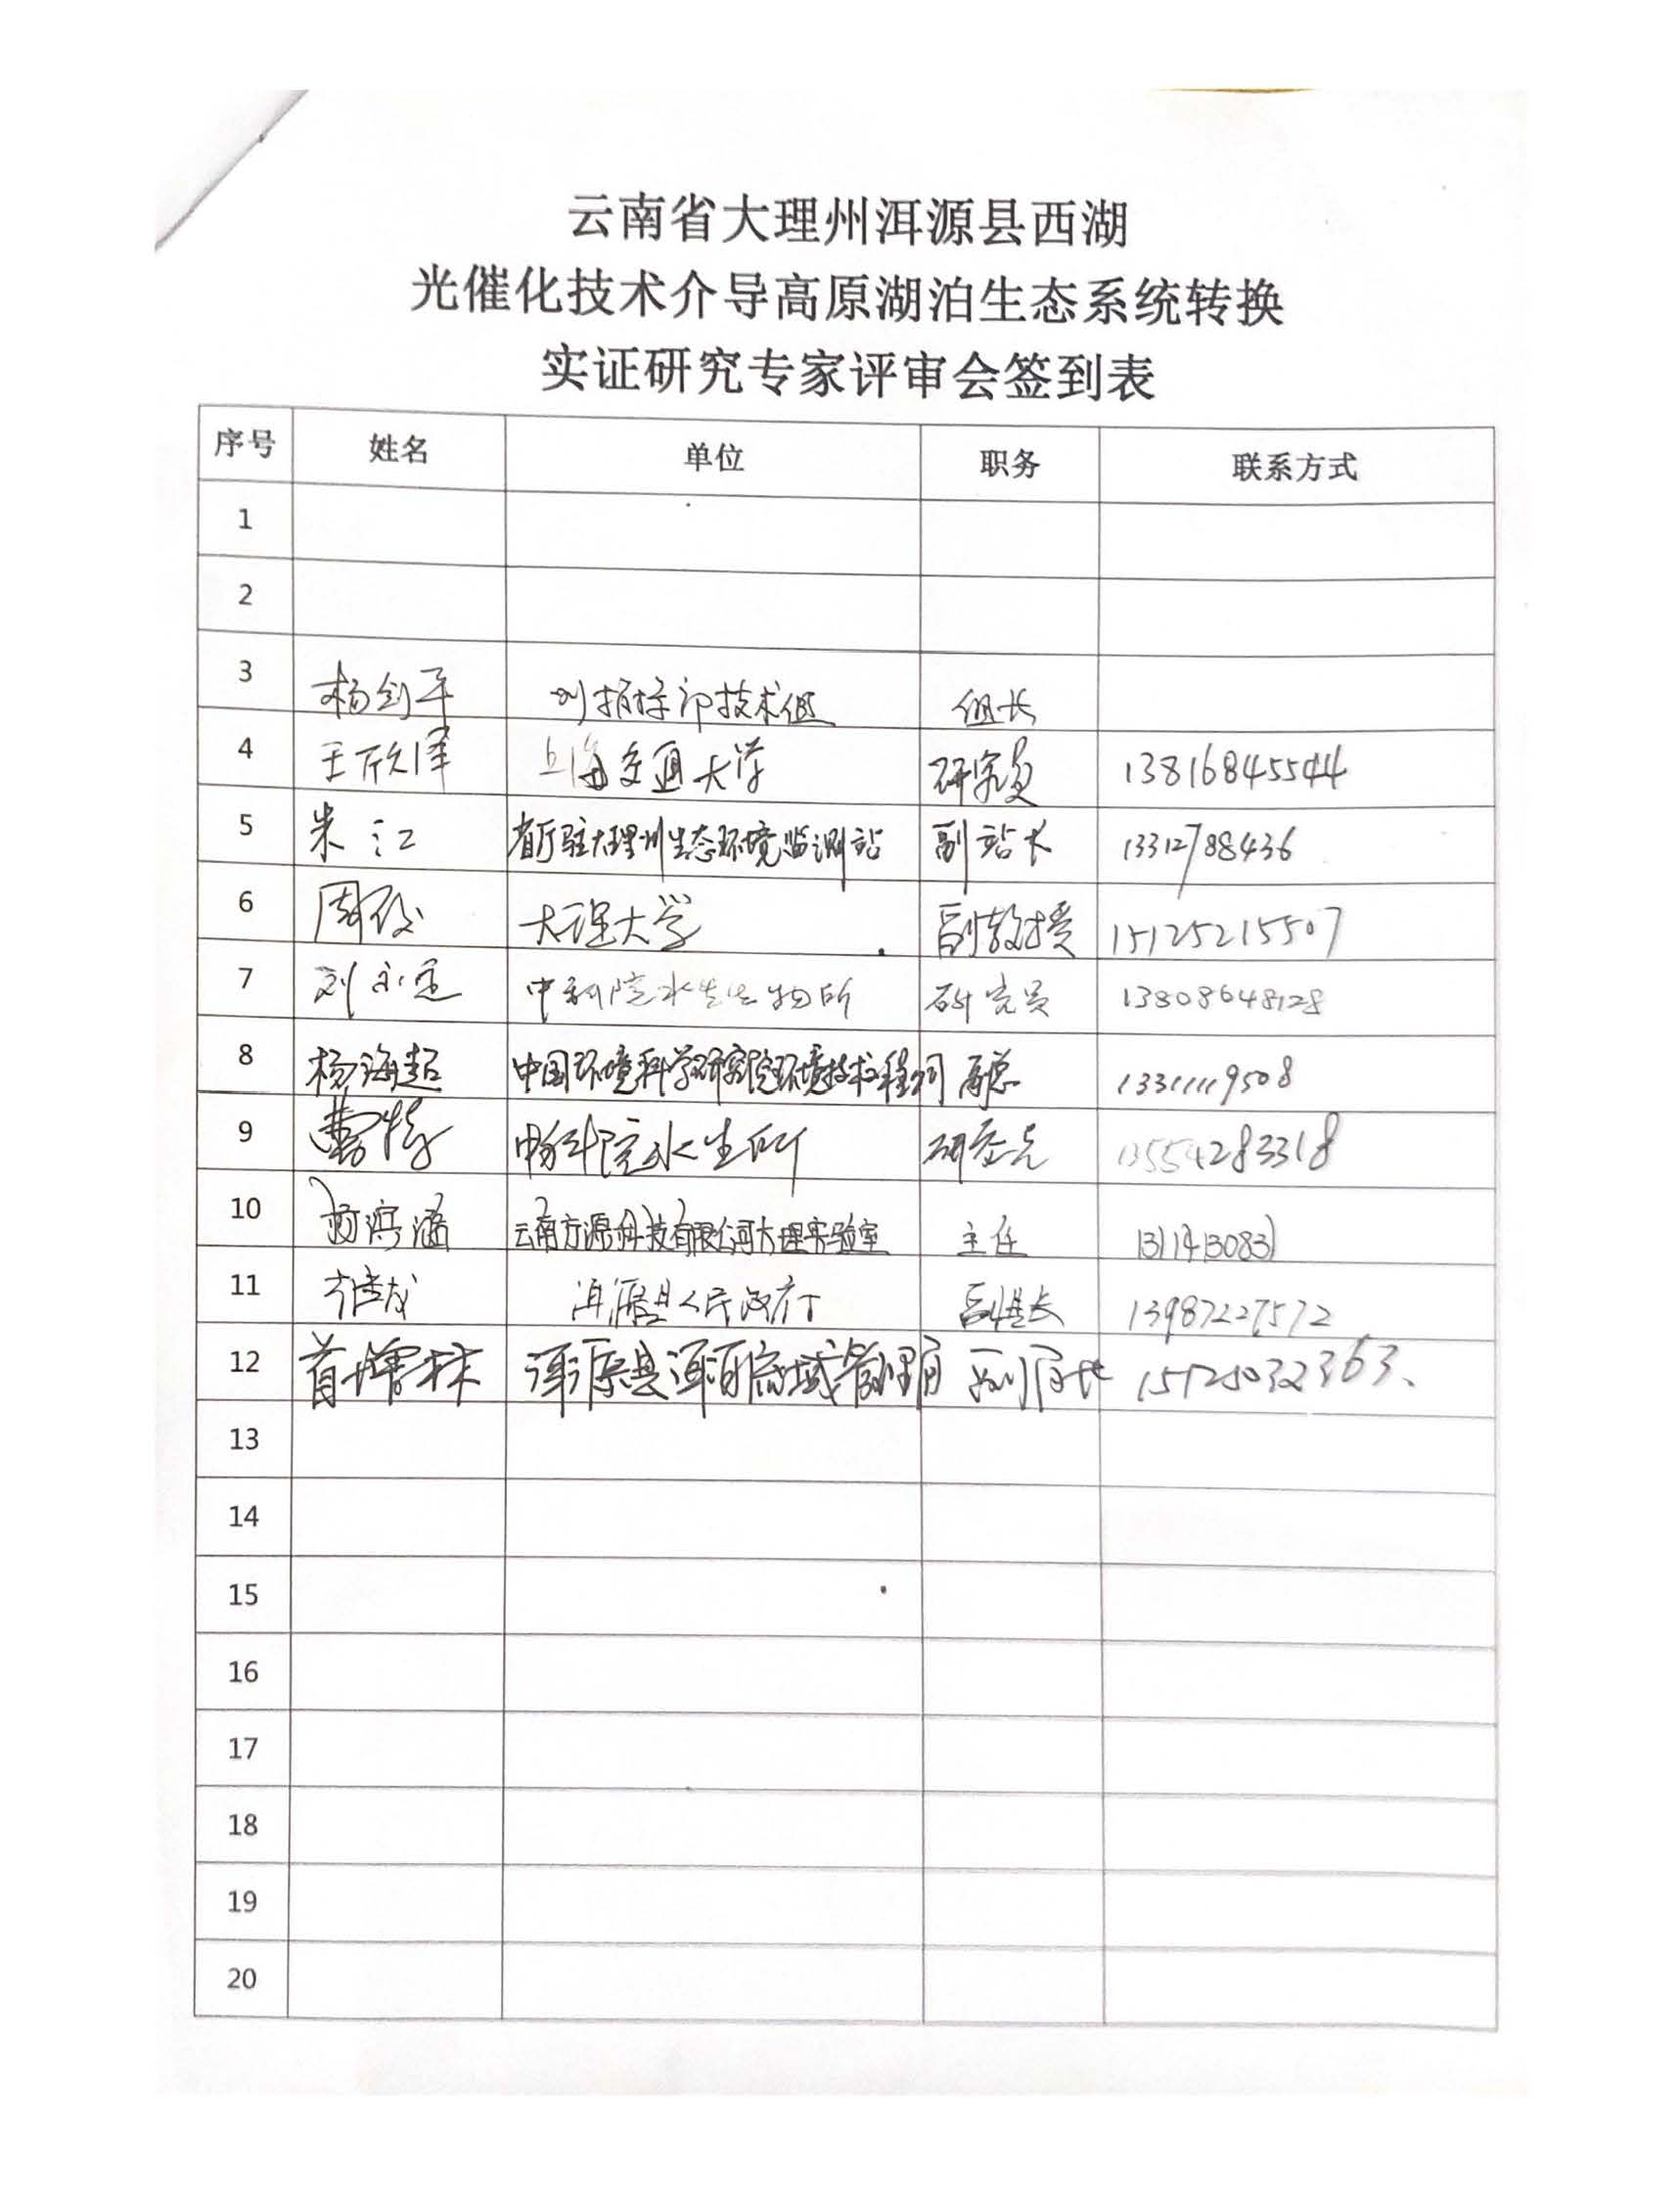 云南省大理州洱源县西湖
光催化技术介导高原湖泊生态系统转换
实证研究专家评审会签到表
序号 姓名 单位 职务 联系方式
1
2
3 杨剑平 技术组 组长
4 王欣泽 上海交通大学 研究员 13816845544
5 朱江 省厅驻大理州生态环境监测站 副站长 13312788436
6 周 大理大学 副教授 15125215507
7 刘永定 中科院水生生物所 研究员 13808648128
8 杨海超 中国环境科学研究院环境技术工程公司 高总 13311119508
9 曹特 中科院水生所 研究员 13554283318
10 云南方源科技有限公司大理实验室 主任 13114130831
11 洱源县人民政府 副县长 13987227572
12 洱源县洱海流域管理局 副局长 15125032363、
13
14
15
16
17
18
19
20